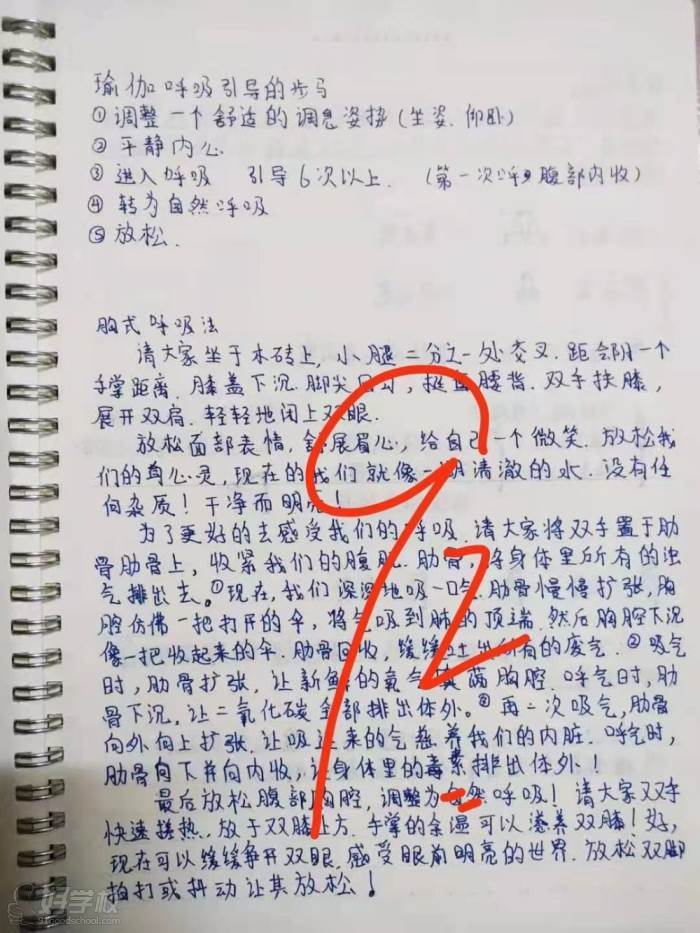 瑜伽呼吸引导的步马
① 调整一个舒适的调息姿势(坐姿.仰卧)
② 平静内心.
③ 进入呼吸 引导6次以上. (第一次呼吸腹部内收)
④ 转为自然呼吸
⑤ 放松.
胸式呼吸法
请大家坐于木砖上,小腿二分之一处交叉.距会阴一个
手掌距离.膝盖下沉.脚尖回勾,挺直腰背.双手扶膝,
展开双肩.轻轻地闭上双眼.
放松面部表情,舒展眉心,给自己一个微笑.放松我
们的身心灵,现在的我们就像一湖清澈的水.没有任
何杂质!干净而明亮!
为了更好的去感受我们的呼吸.请大家将双手置于肋
骨肋骨上,收紧我们的腹肌.肋骨,将身体里所有的浊
气排出去。①现在,我们深深地吸一口气.肋骨慢慢扩张,胸
腔仿佛一把打开的伞,将气吸到肺的顶端.然后胸腔下沉
像一把收起来的伞.肋骨回收,缓缓吐出所有的废气.②吸气
时,肋骨扩张.让新鲜的氧气 两胸腔.呼气时,肋
骨下沉,让二氧化碳全部排出体外。③再一次吸气,肋骨
向外向上扩张.让吸进来的气慈养我们的内脏.呼气时,
肋骨向下并向内收,让身体里的毒素排出体外!
最后放松腹部胸腔,调整为自然呼吸!请大家双手
快速搓热.放于双膝上方.手掌的余温可以滋养双膝!好,
现在可以缓缓争开双眼.感受眼前明亮的世界.放松双脚
拍打或抖动让其放松!
92
好学校
91goodschool.com